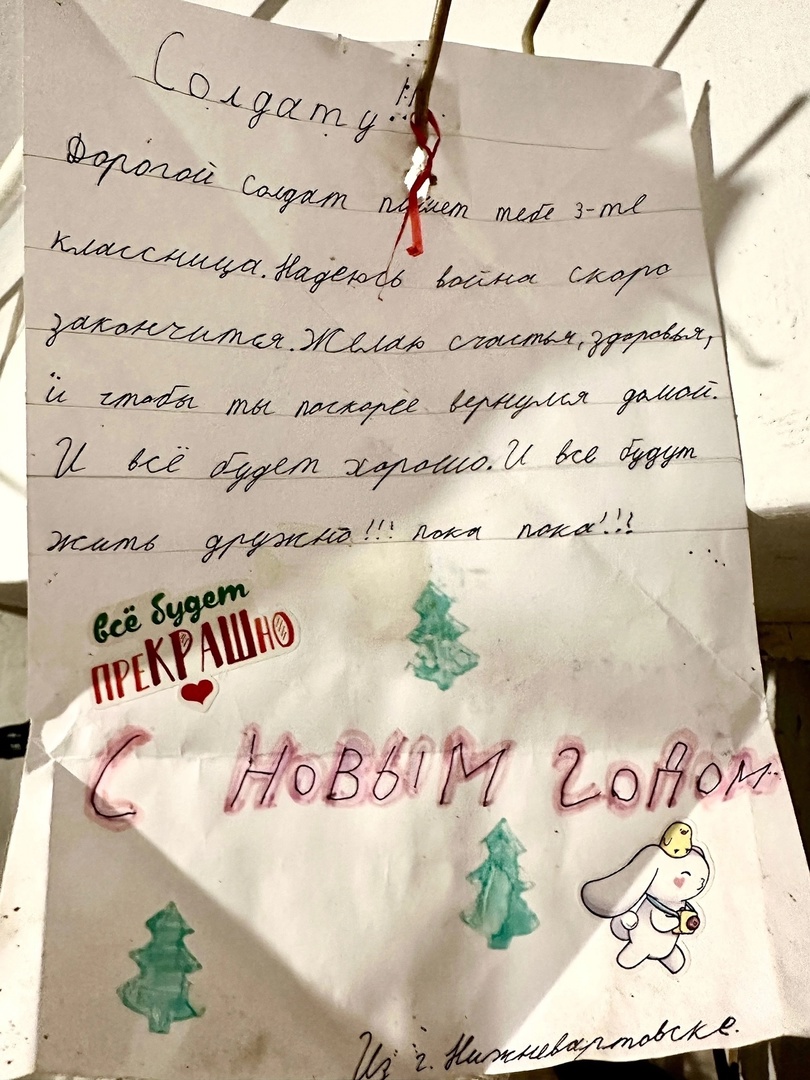 Солдату!!
Дорогой солдат пишет тебе 3-те
классница. Надеюсь война скоро
закончится. Желаю счастья, здоровья,
и чтобы ты поскорее вернулся домой.
И всё будет хорошо. И все будут
жить дружно!!! пока пока!!!
всё будет
ПРЕКРАШНО
С НОВЫМ ГОДОМ
Из г. Нижневартовске.